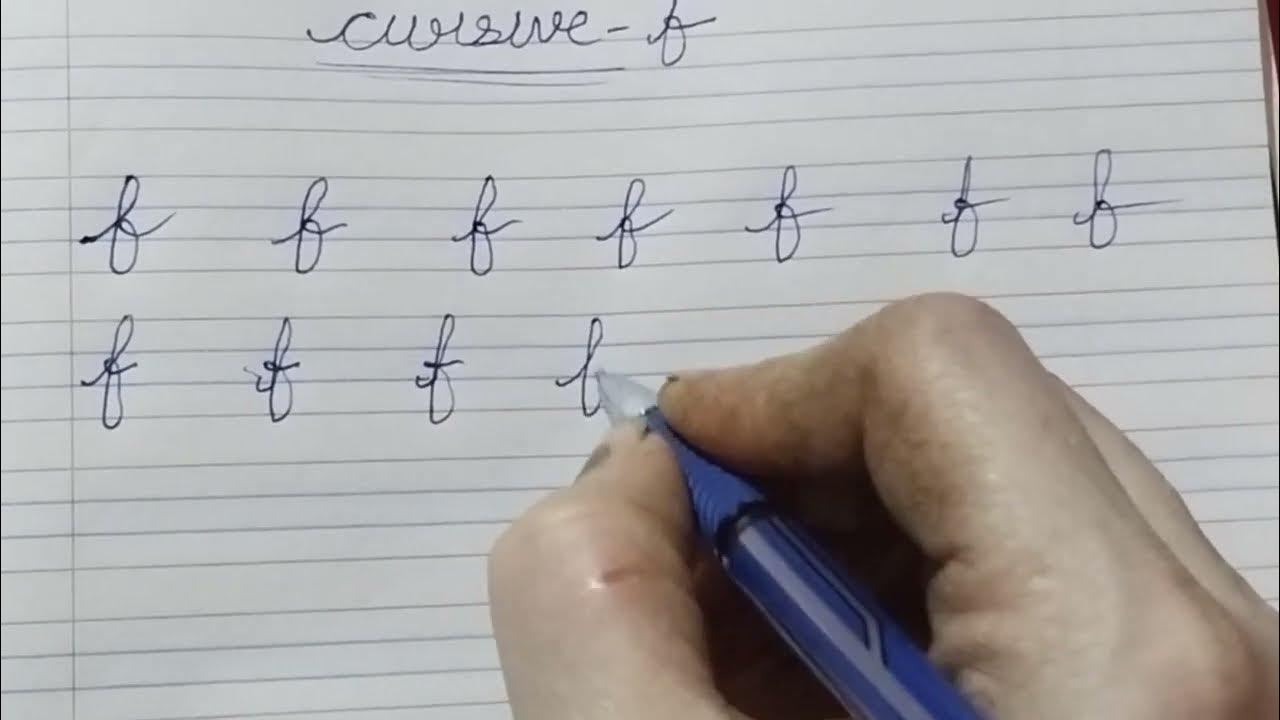 cursive - f
f f f f f f f
f f f f